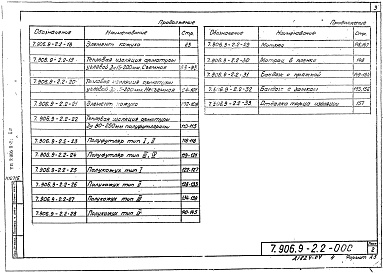 3
Продолжение
Обозначение Наименование Стр.
7.906.9-2.2-18 Элемент кожуха
7.906.9-2.2-19 Тепловая изоляция арматуры
угловой Съемная
7.906.9-2.2-20 Тепловая изоляция арматуры
угловой Несъемная
7.906.9-2.2-21 Элемент кожуха
7.906.9-2.2-22 Тепловая изоляция арматуры
полуфутлярами 110-115
7.906.9-2.2-23 Полуфутляр тип I, II 116-118
7.906.9-2.2-24 Полуфутляр тип III, IV 119-121
7.906.9-2.2-25 Полукожух тип I 122-127
7.906.9-2.2-26 Полукожух тип II 128-133
7.906.9-2.2-27 Полукожух тип III 134-139
7.906.9-2.2-28 Полукожух тип IV 140-145
Продолжение
Обозначение Наименование Стр.
7.906.9-2.2-29 Матрац
7.906.9-2.2-30 Матрац в пленке 148
7.906.9-2.2-31 Бандаж с пряжкой
7.906.9-2.2-32 Бандаж с замком
7.906.9-2.2-33 Отделка торца изоляции 157
7.906.9-2.2-00С
Лист
2
Формат А3